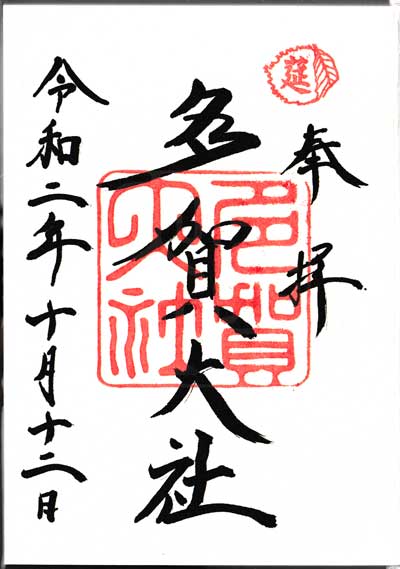 延
奉拝
多賀大社
多賀大社
令和二年十月十二日